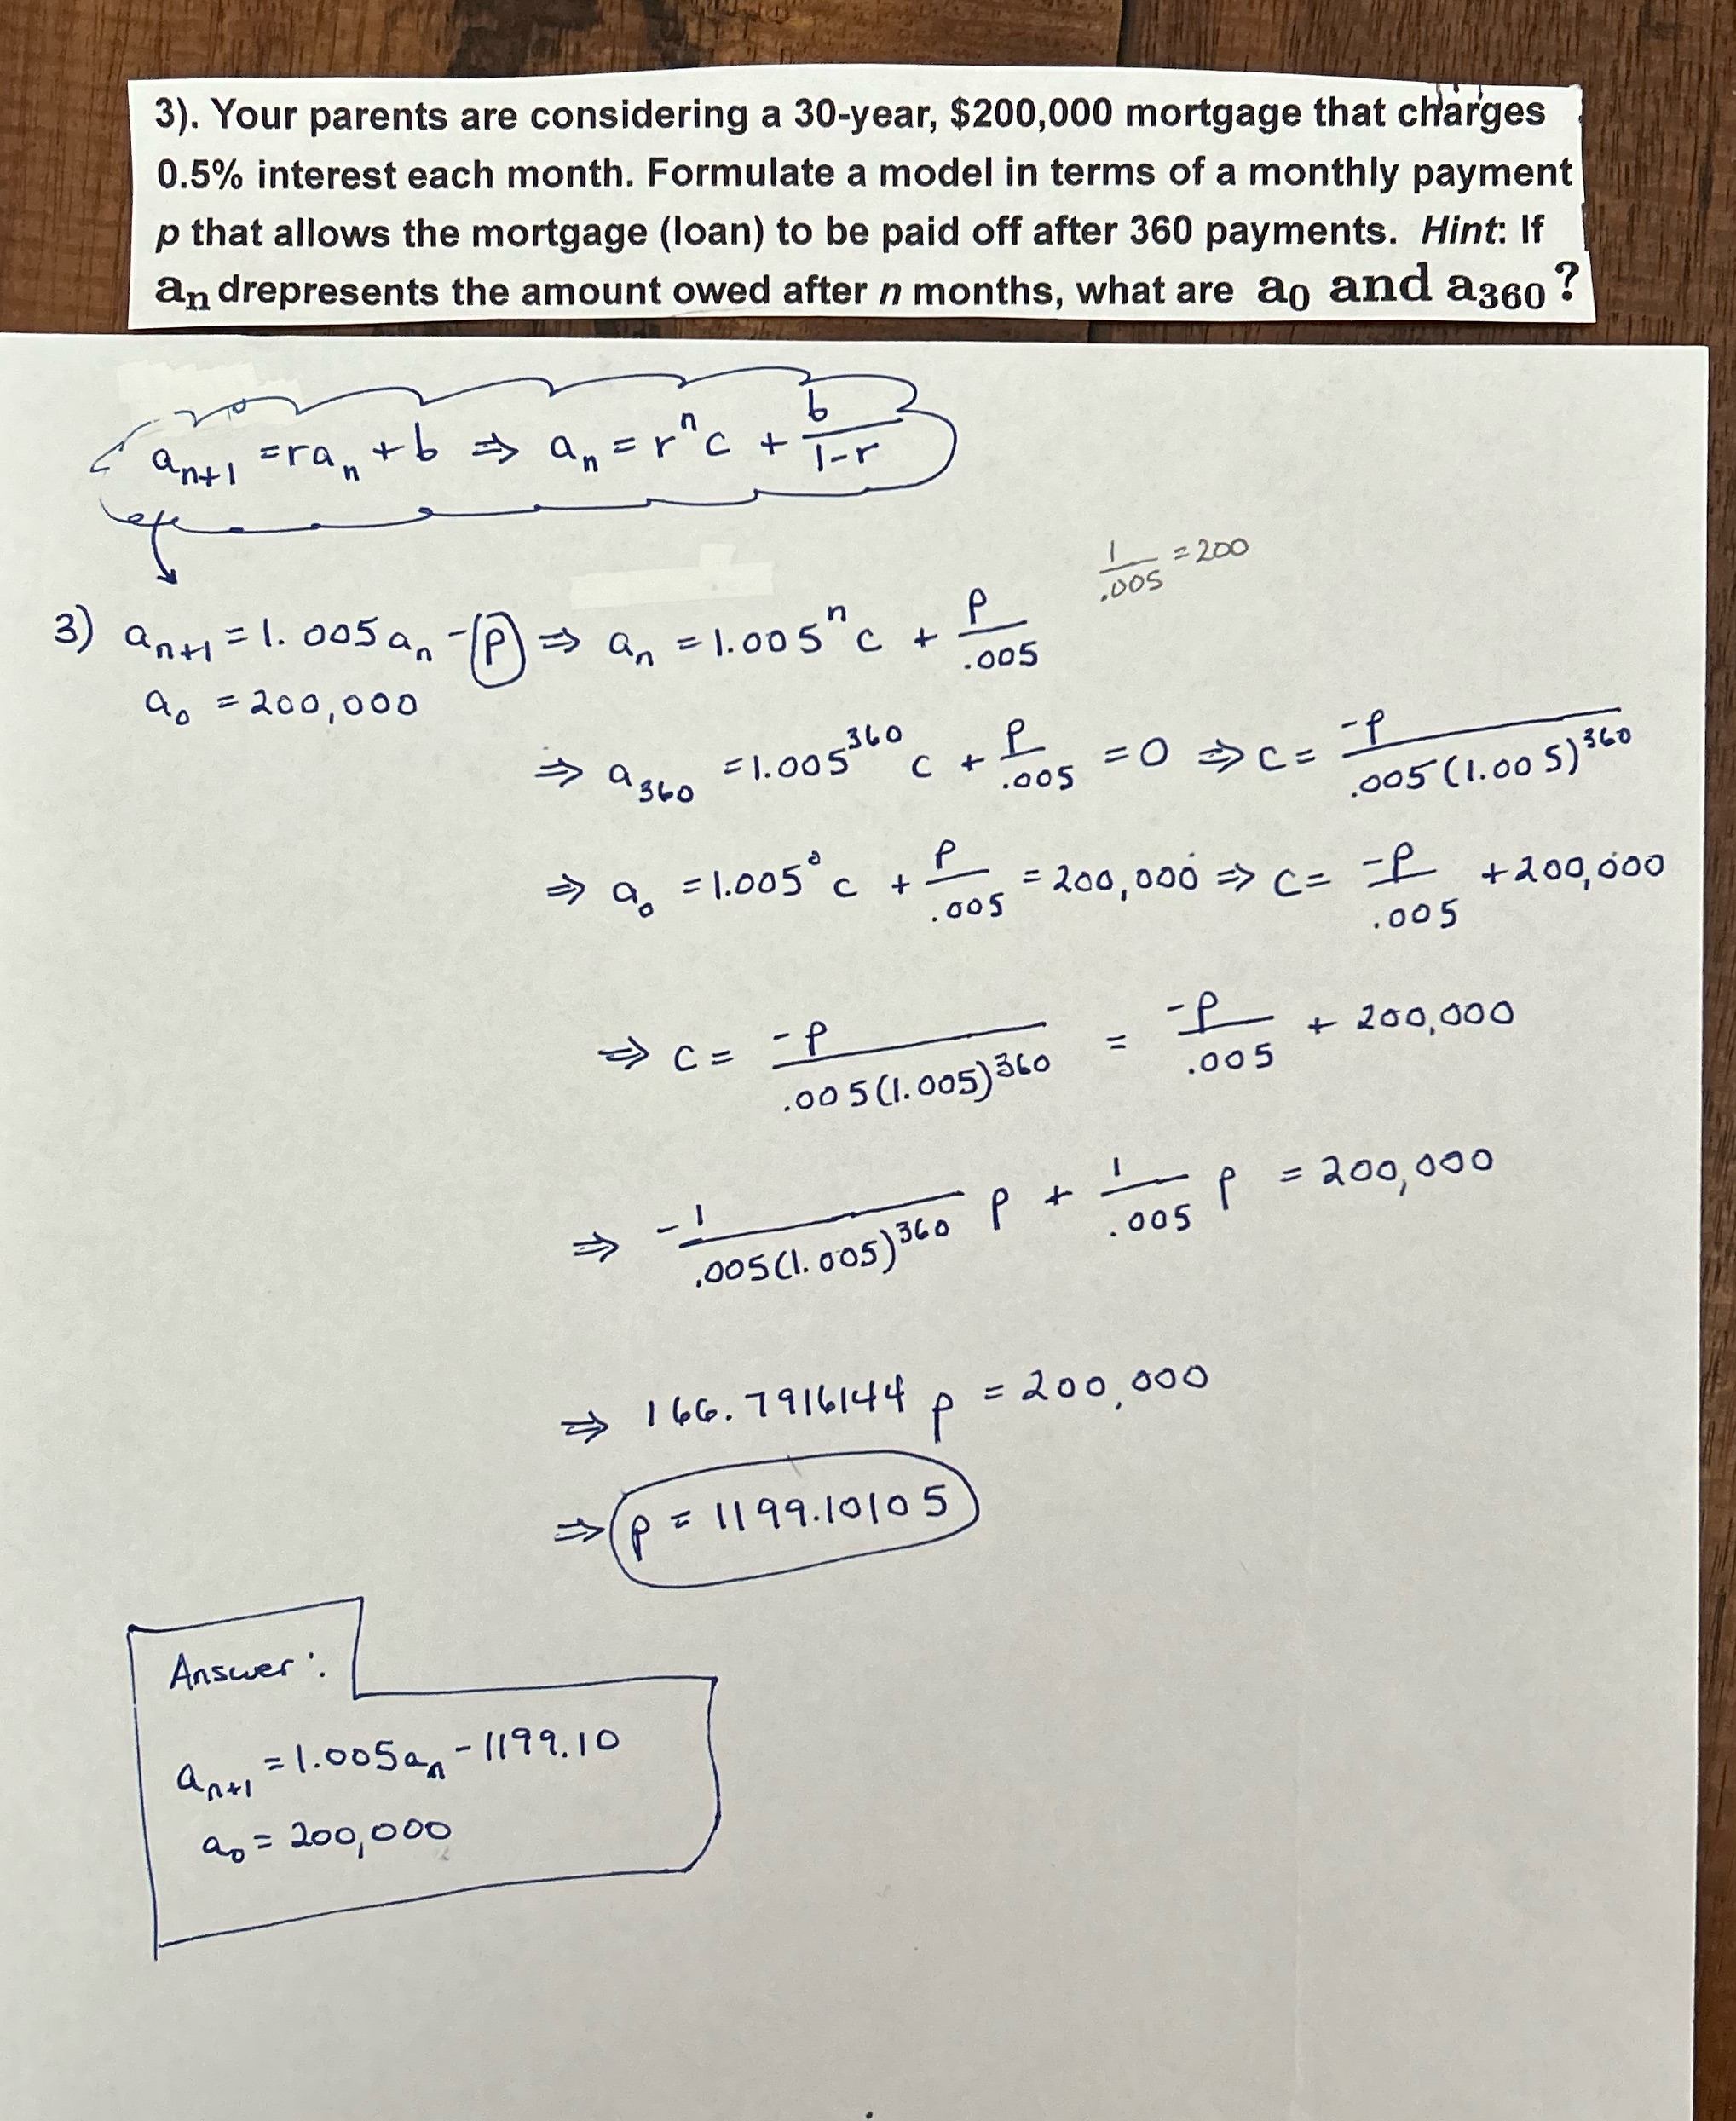 3). Your parents are considering a 30-year, $200,000 mortgage that charges
0.5% interest each month. Formulate a model in terms of a monthly payment
p that allows the mortgage (loan) to be paid off after 360 payments. Hint: If
aₙ drepresents the amount owed after n months, what are a₀ and a₃₆₀?
aₙ₊₁ = raₙ + b ⇒ aₙ = rⁿc + b/(1-r)
1/.005 = 200
3) aₙ₊₁ = 1.005aₙ - p ⇒ aₙ = 1.005ⁿc + p/.005
a₀ = 200,000
⇒ a₃₆₀ = 1.005³⁶⁰c + p/.005 = 0 ⇒ c = -p/.005(1.005)³⁶⁰
⇒ a₀ = 1.005⁰c + p/.005 = 200,000 ⇒ c = -p/.005 + 200,000
⇒ c = -p/.005(1.005)³⁶⁰ = -p/.005 + 200,000
⇒ -1/.005(1.005)³⁶⁰ p + 1/.005 p = 200,000
⇒ 166.7916144 p = 200,000
⇒ p = 1199.10105
Answer:
aₙ₊₁ = 1.005aₙ - 1199.10
a₀ = 200,000